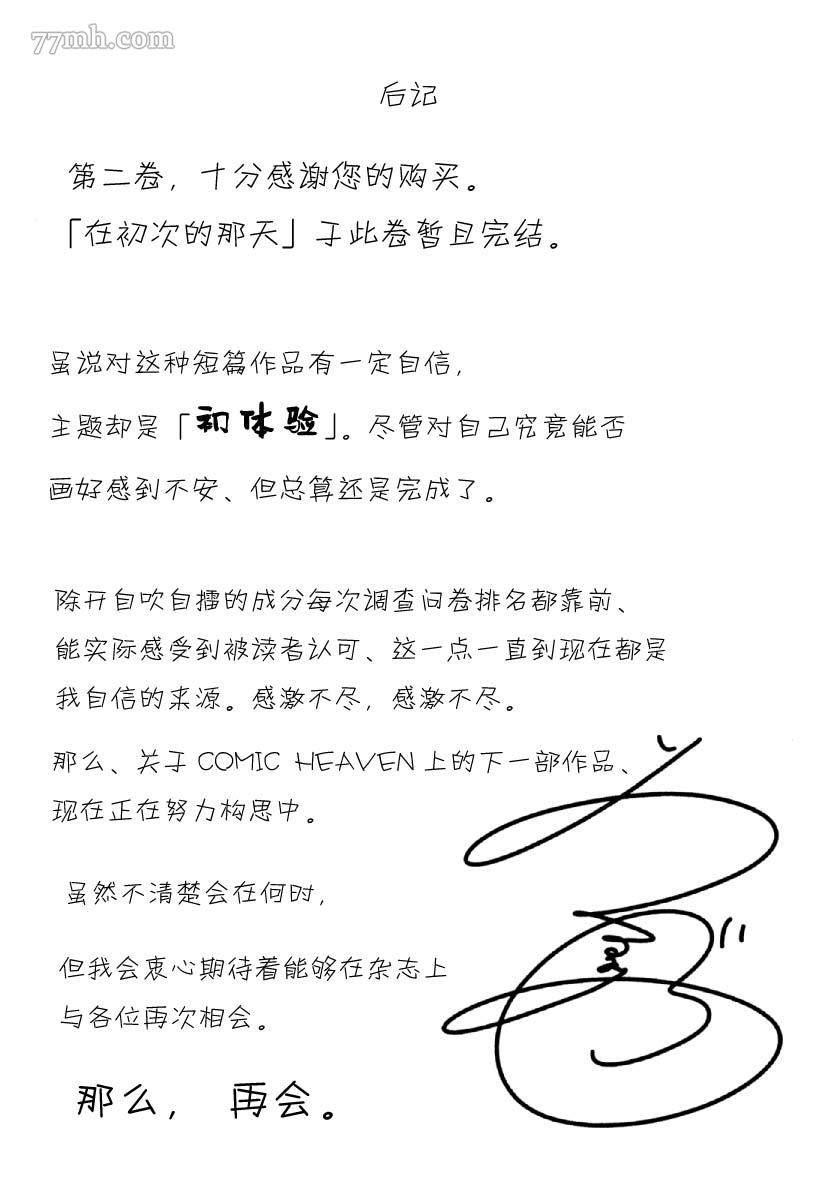 77mh.com
后记
第二卷，十分感谢您的购买。
「在初次的那天」于此卷暂且完结。
虽说对这种短篇作品有一定自信，
主题却是「初体验」。尽管对自己究竟能否
画好感到不安、但总算还是完成了。
除开自吹自擂的成分每次调查问卷排名都靠前、
能实际感受到被读者认可、这一点一直到现在都是
我自信的来源。感激不尽，感激不尽。
那么、关于 COMIC HEAVEN 上的下一部作品、
现在正在努力构思中。
虽然不清楚会在何时，
但我会衷心期待着能够在杂志上
与各位再次相会。
那么， 再会。